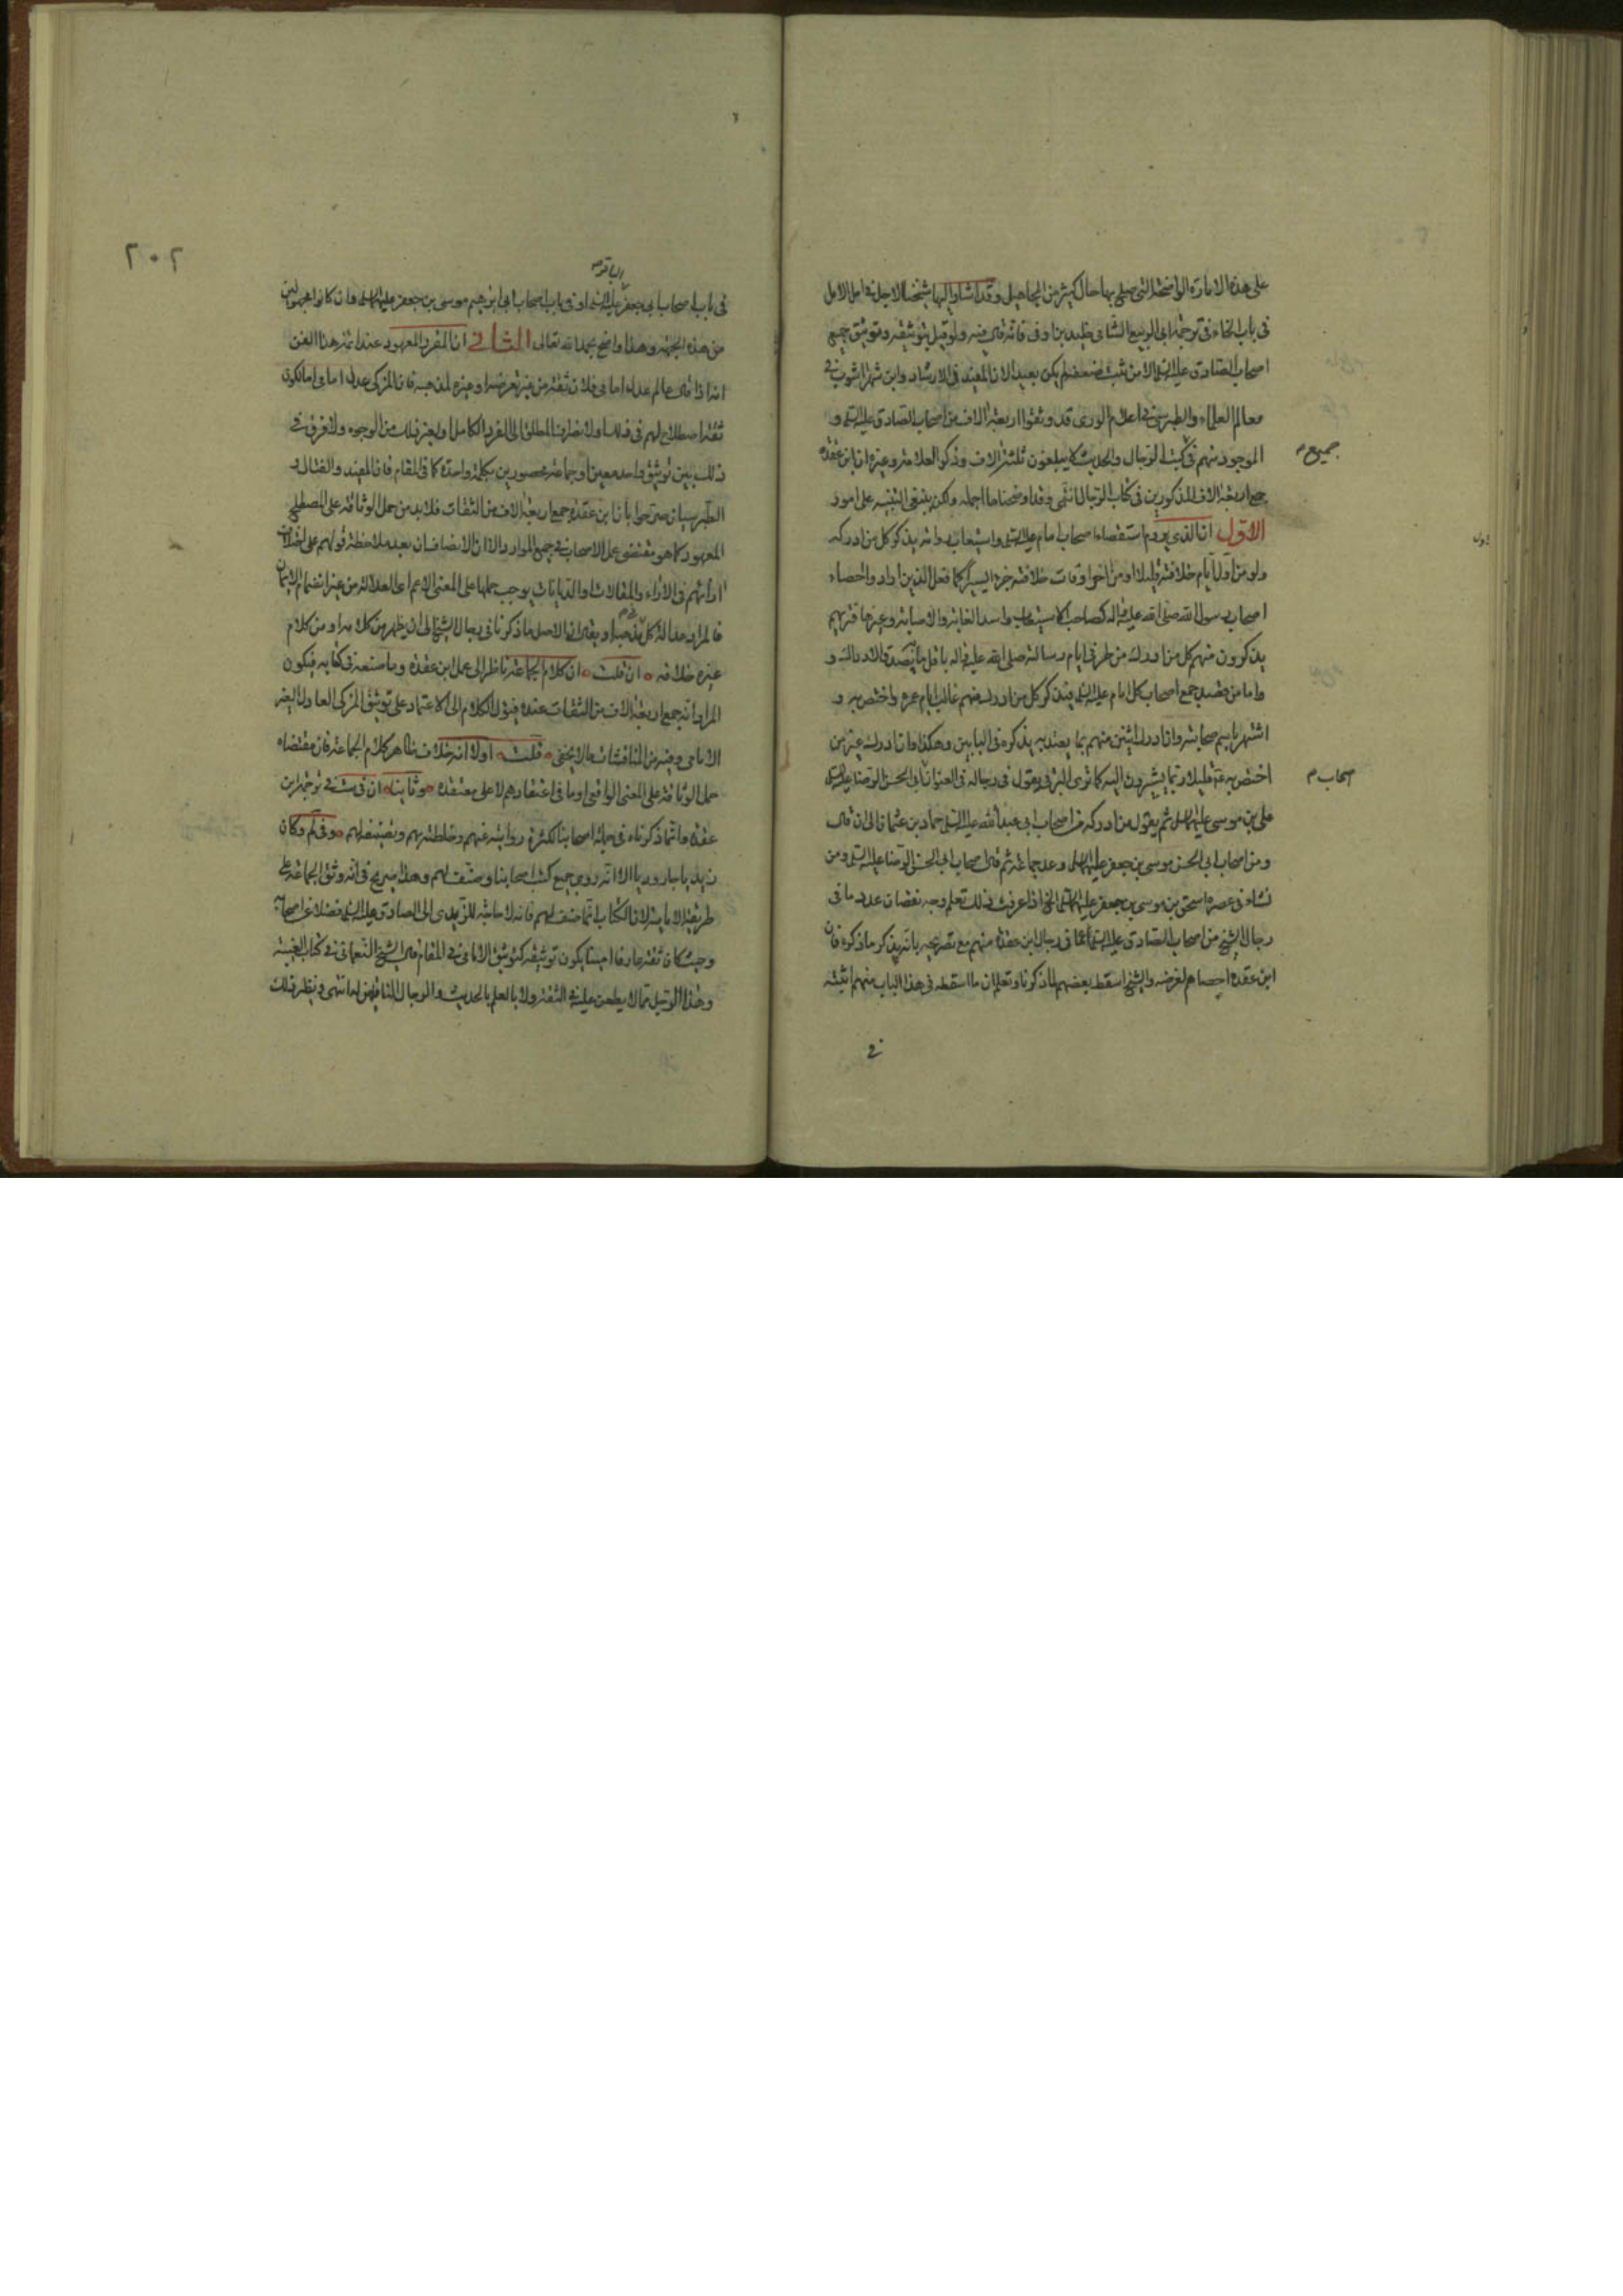 على هذه الامارة الواضحة التي صلح بها حال كثير من المجاهيل وقد اشار اليها شيخنا الاجل في امل الامل
في باب الخاء في ترجمة ابي الربيع الشامي خليد بن اوفى فانه قال فيه ولو قيل بتوثيقه وتوثيق جميع
اصحاب الصادق عليه السلام الا من ثبت ضعفه لم يكن بعيدا لان المفيد في الارشاد وابن شهراشوب في
معالم العلماء والطبرسي في اعلام الورى قد وثقوا اربعة الاف من اصحاب الصادق عليه السلام و
الموجود منهم في كتب الرجال والحديث لا يبلغون ثلثة الاف وذكر العلامة وغيره ان ابن عقدة
جميع
جمع اربعة الاف المذكورين في كتاب الرجال انتهى وقد اوضحنا ما اجمله ولكن ينبغي التنبيه على امور
الاول ان الذي يروم استقصاء اصحاب امام عليه السلام واستيعابه وانه يذكر كل من ادركه
ولو من اول ايام خلافته قليلا او من اخر اوقات خلافته جزء يسيرا كما فعل الذين اراد واحصاء
اصحاب رسول الله صلى الله عليه واله كصاحب الاستيعاب واسد الغابة والاصابة وغيرها فتريهم
يذكرون منهم كل من ادرك من طرفي ايام رسالته صلى الله عليه واله باقل ما يصدق الادراك و
واما من قصد جمع اصحاب كل امام عليه السلام فيذكر كل من ادرك منهم غالب ايام عمره واختص به و
اشتهر باسم صحابته وان ادرك اثنين منهم بما يعتد به يذكره في البابين وهكذا وان ادرك غير من
اختص به قليلا ربما يشيرون اليه كما ترى البرقي يقول في رجاله في العنوان ابي الحسن الرضا
صحاب
علي بن موسى عليهما السلام ثم يقول من ادركه من اصحاب ابي عبد الله عليه السلام حماد بن عثمان الى ان قال
ومن اصحاب ابي الحسن موسى بن جعفر عليهما السلام وعد جماعة ثم قال اصحاب ابي الحسن الرضا عليه السلام ومن
نشاء في عصره اسحق بن موسى بن جعفر عليهما السلام الخ اذا عرفت ذلك تعلم وجه نقصان عدد ما في
رجال الشيخ من اصحاب الصادق عليه السلام عما في رجال ابن عقدة منهم مع تصريحه بانه يذكر ما ذكره فان
ابن عقدة احصاهم لغرضه والشيخ اسقط بعضهم لما ذكرنا وتعلم ان ما اسقطه في هذا الباب منهم اثبته
في
٢٠٢
الباقر
في باب اصحاب ابي جعفر عليه السلام او في باب اصحاب ابي ابراهيم موسى بن جعفر عليهما السلام وان كانوا مجهولين
من هذه الجهة وهذا واضح بحمد الله تعالى الثاني ان المقرر المعهود عند ائمة هذا الفن
انه اذا قال عالم عدل امامي فلان ثقة من غير تعرضه او غيره لمذهبه فان المزكى عدل امامي اما لكون
ثقة اصطلاح لهم في ذلك او لانصراف المطلق الى الفرد الكامل او لغير ذلك من الوجوه ولا فرق في
ذلك بين توثيق واحد معين او جماعة محصورين بكلمة واحدة كما في المقام فان المفيد والفتال و
الطبرسيان صرحوا بان ابن عقدة جمع اربعة الاف من الثقات فلا بد من حمل الوثاقة على المصطلح
المعهود كما هو مقتضى عمل الاصحاب في جميع الموارد الا ان الانصاف ان بعد ملاحظة قولهم على اختلاف
ارائهم في الاراء والمقالات او الديانات يوجب حملها على المعنى الاعم اعني العدالة من غير انضمام الايمان
فالمراد عدالة كل في مذهبه او يقال ان الاصل ما ذكرنا في رجال الشيخ الى ان يظهر من كلامه او من كلام
غيره خلافه ان قلت ان كلام الجماعة ناظر الى عمل ابن عقدة وما صنعه في كتابه فيكون
المراد انه جمع اربعة الاف من الثقات عنده فيؤل الكلام الى الاعتماد على توثيق المزكي العادل الغير
الامامي وفيه من المناقشات ما لا يخفى قلت اولا انه خلاف ظاهر كلام الجماعة فان مقتضاه
حمل الوثاقة على المعنى الواقعي او ما في اعتقادهم لا على معتقده وثانيا ان في ست في ترجمة ابن
عقدة وانما ذكرناه في جملة اصحابنا لكثرة رواياته عنهم وخلطته بهم وتصنيفه لهم وفي لم وكان
زيديا جاروديا الا انه روى جميع كتب اصحابنا وصنف لهم وهذا صريح في انه وثق الجماعة على
طريقة الامامية لان الكتاب انما صنف لهم فانه لا حاجة للزيدي الى الصادق عليه السلام فضلا عن اصحابه
وحيث كان ثقة عارفا امينا يكون توثيقه كتوثيق الامامي في المقام قال الشيخ النعماني في كتاب الغيبة
وهذا الرجل مما لا يطعن عليه في الثقة ولا بالعلم بالحديث والرجال الناقلين له انتهى ونظير ذلك